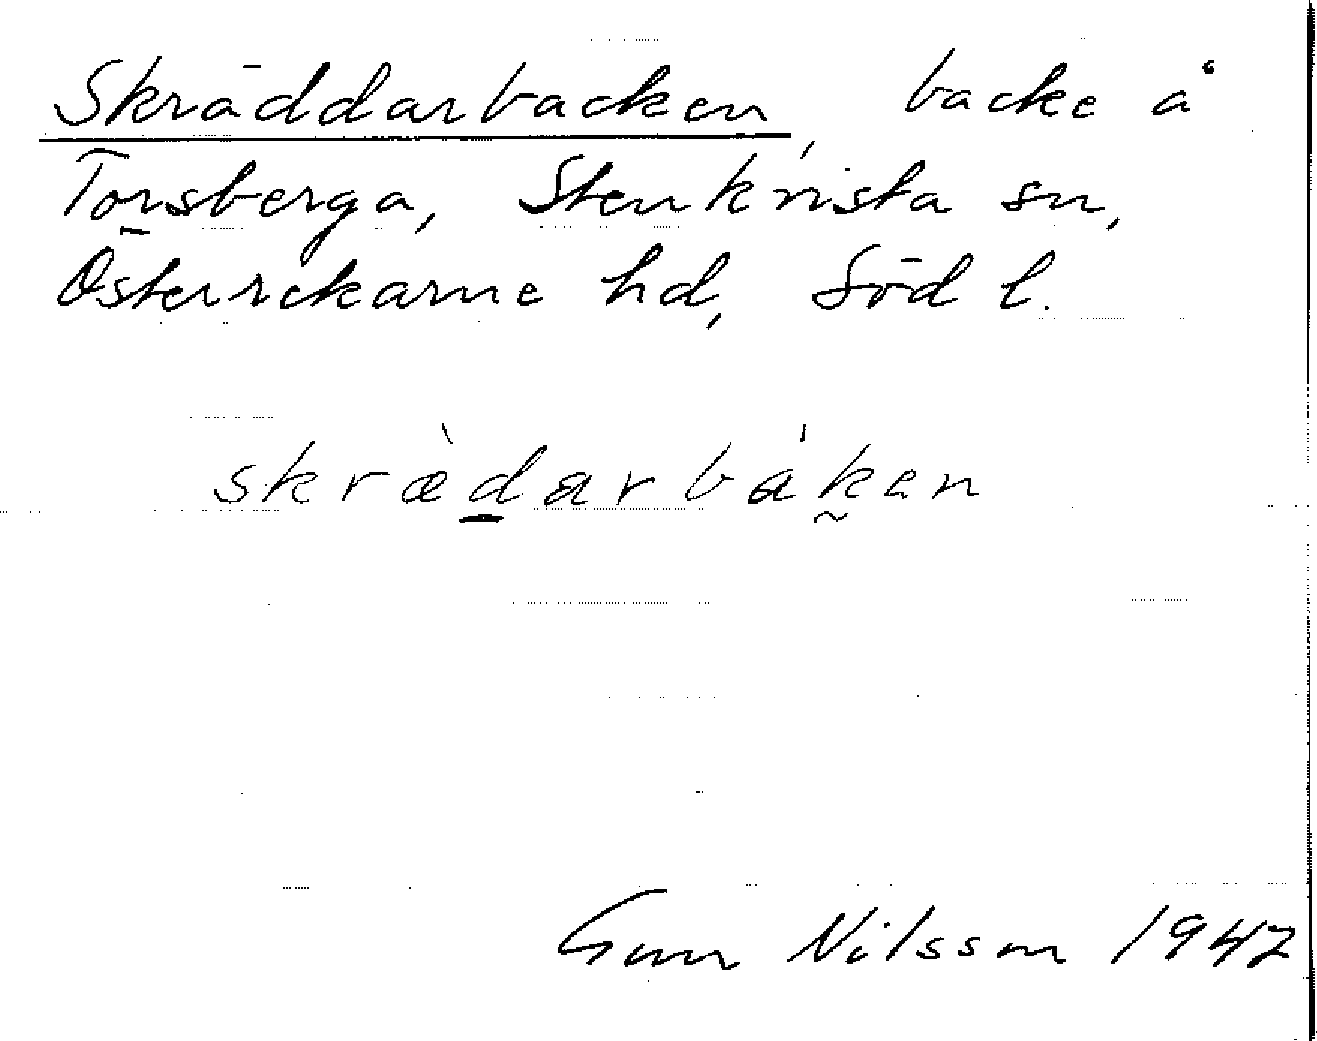 Skräddarbacken, backe å
Torsberga, Stenkvista sn,
Österrekarne hd, Söd l.
skræ̀darbákan
Gun Nilsson 1947